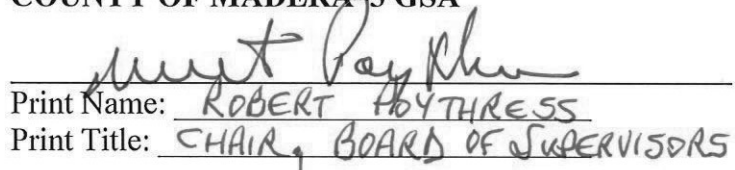 COUNTY OF MADERA-3 GSA
Print Name: ROBERT POYTHRESS
Print Title: CHAIR, BOARD OF SUPERVISORS